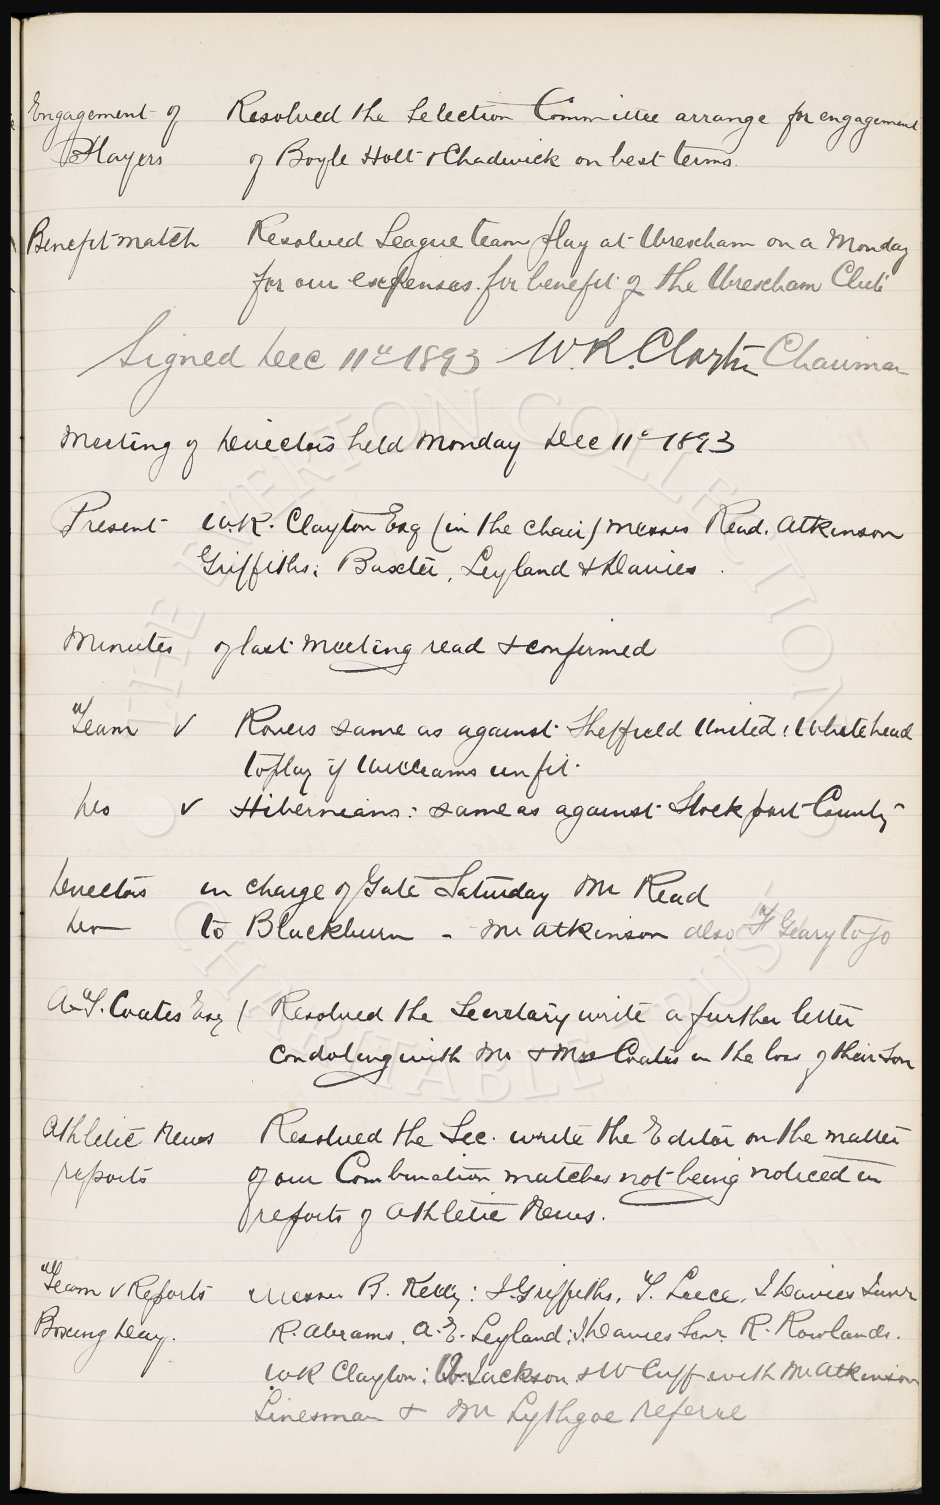 Engagement of Resolved the Selection Committee arrange for engagement
Players of Boyle Holt & Chadwick on best terms.
Benefit match Resolved League team play at Wrexham on a Monday
for our expenses for benefit of the Wrexham Club
Signed Dec 11th 1893 W.R. Clayton Chairman
Meeting of Directors held Monday Dec 11th 1893
Present W.R. Clayton Esq (in the chair) Messrs Read. Atkinson
Griffiths; Baxter, Leyland & Davies.
Minutes of last meeting read & confirmed
Team v Rovers same as against Sheffield United: Whitehead
to play if Williams unfit.
Do v Hibernians: same as against Stockport County
Directors in charge of Gate Saturday Mr Read
Do to Blackburn - Mr Atkinson also F Geary to go
A.T. Coates Esq / Resolved the Secretary write a further letter
condoling with Mr & Mrs Coates in the loss of their Son
Athletic News Resolved the Sec. write the Editor on the matter
reports of our Combination matches not being noticed in
reports of Athletic News.
Team v Reports Messrs B. Kelly: J. Griffiths, T. Leece, J Davies Junr
Boxing Day. R. Abrams, A.E. Leyland; J Davies Senr R. Rowlands.
W R Clayton; Jackson & W Cuff with Mr Atkinson
Linesman & Mr Lythgoe referee
THE EVERTON COLLECTION
CHARITABLE TRUST